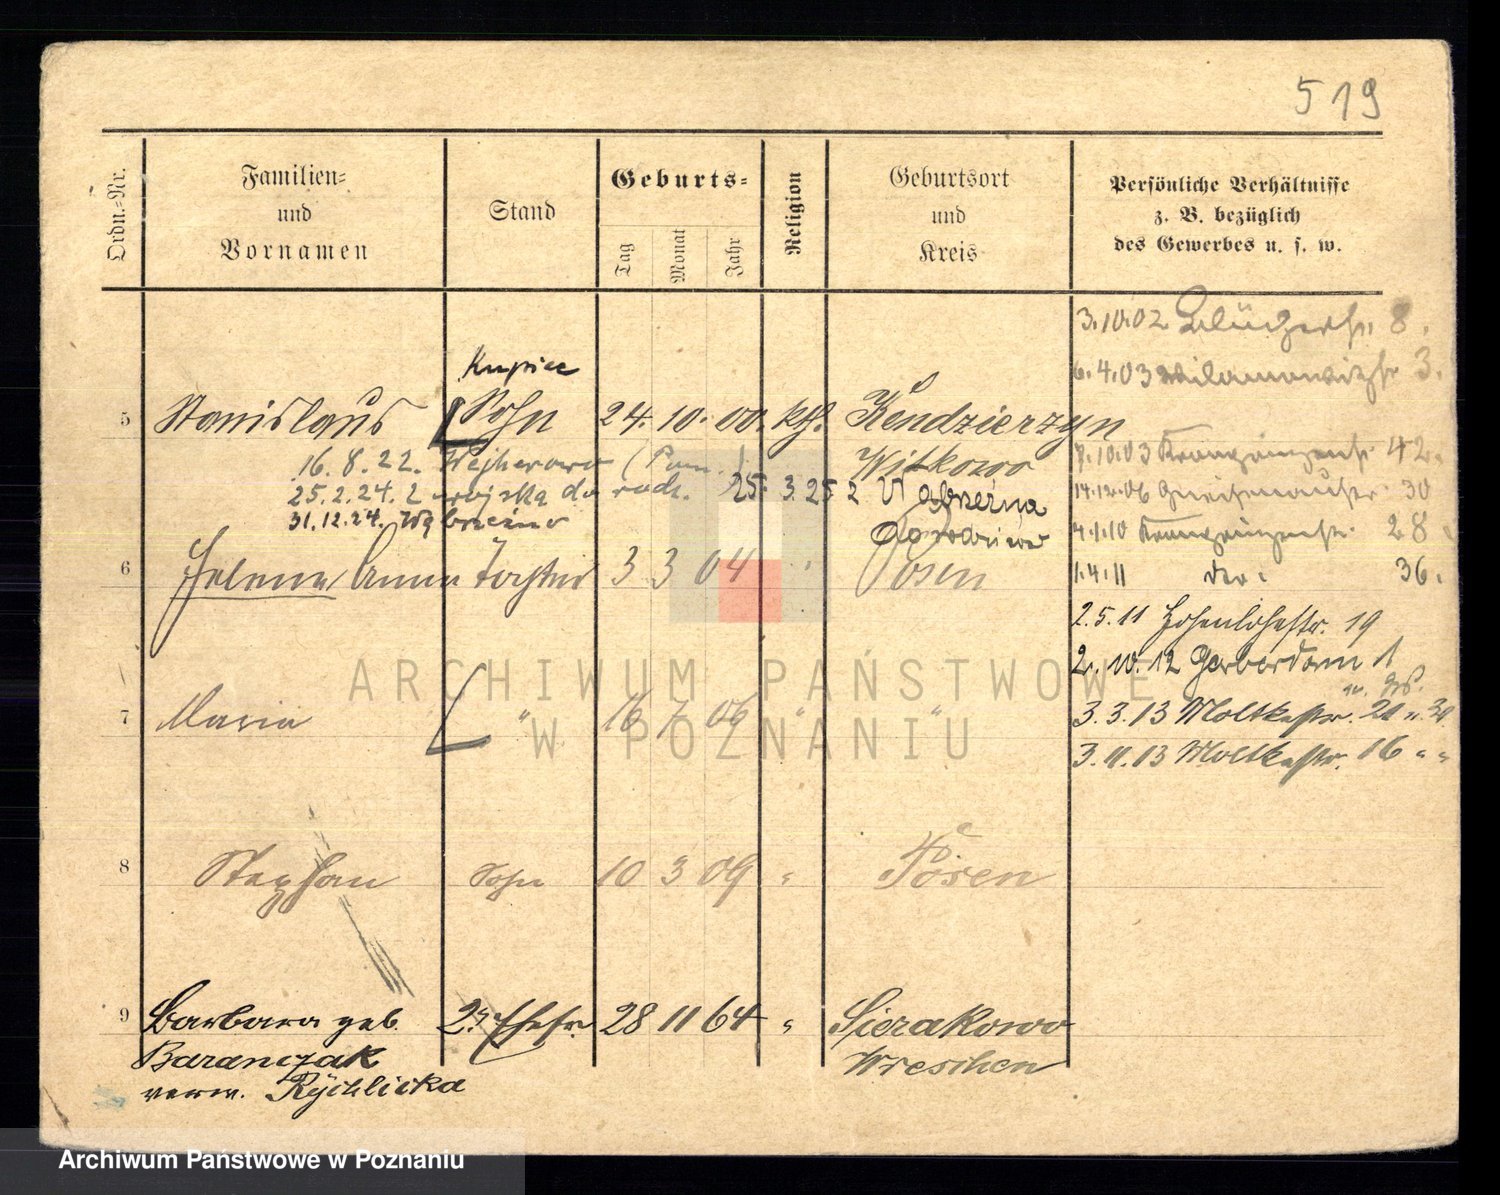 519
Ordn.-Nr.
Familien-
und
Vornamen
Stand
Geburts-
Tag
Monat
Jahr
Religion
Geburtsort
und
Kreis
Persönliche Verhältnisse
z. B. bezüglich
des Gewerbes u. s. w.
3.10.02 Blücherstr. 8.
6.4.03 3.
7.10.03 42.
14.12.06 Gneisenaustr. 30
4.1.10 28
1.4.11 36.
2.5.11 Hohenlohestr. 19
2.10.12 Gerberdamm 1
3.3.13 Moltkestr.
3.11.13 Moltkestr. 16 " "
Kupiec
5 Stanislaus Sohn 24. 10. 00. kth. Kendzierzyn
Witkowo
16.8.22. Wejherowo (Pom.)
25.2.24. z wojska do rodz. 25. 3. 25 z Wąbrzeźna
31.12.24. Wąbrzeźno
6 Helene Anna Tochter 3 3 04 " Posen
7 Maria " 16 7 06 " "
8 Stephan Sohn 10 3 09 " Posen
9 Barbara geb. 2te Ehefr. 28 11 64 " Sierakowo
Baranczak Wreschen
verw. Rychlicka
ARCHIWUM PAŃSTWOWE
W POZNANIU
Archiwum Państwowe w Poznaniu